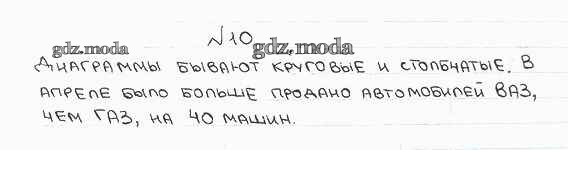 №10
gdz.moda gdz.moda
Диаграммы бывают круговые и столбчатые. В
апреле было больше продано автомобилей ВАЗ,
чем ГАЗ, на 40 машин.